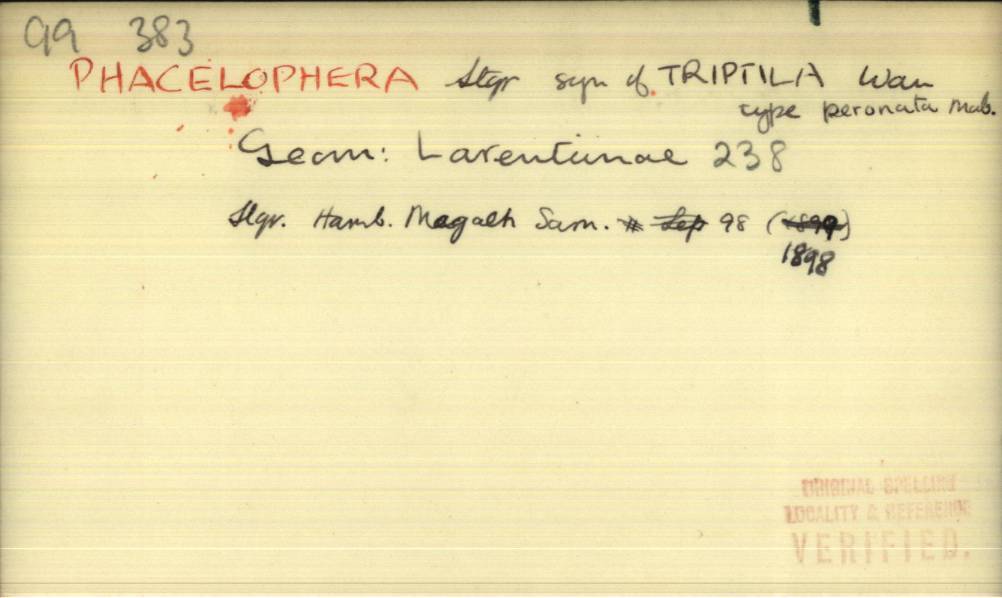 99 383
PHACELOPHERA Stgr syn of. TRIPTILA Warr
type peronata Mab.
Geom: Larentiinae 238
Stgr. Hamb. Magalh Sam. # Lep 98 (1899)
1898
ORIGINAL SPELLING
LOCALITY & REFERENCE
VERIFIED.